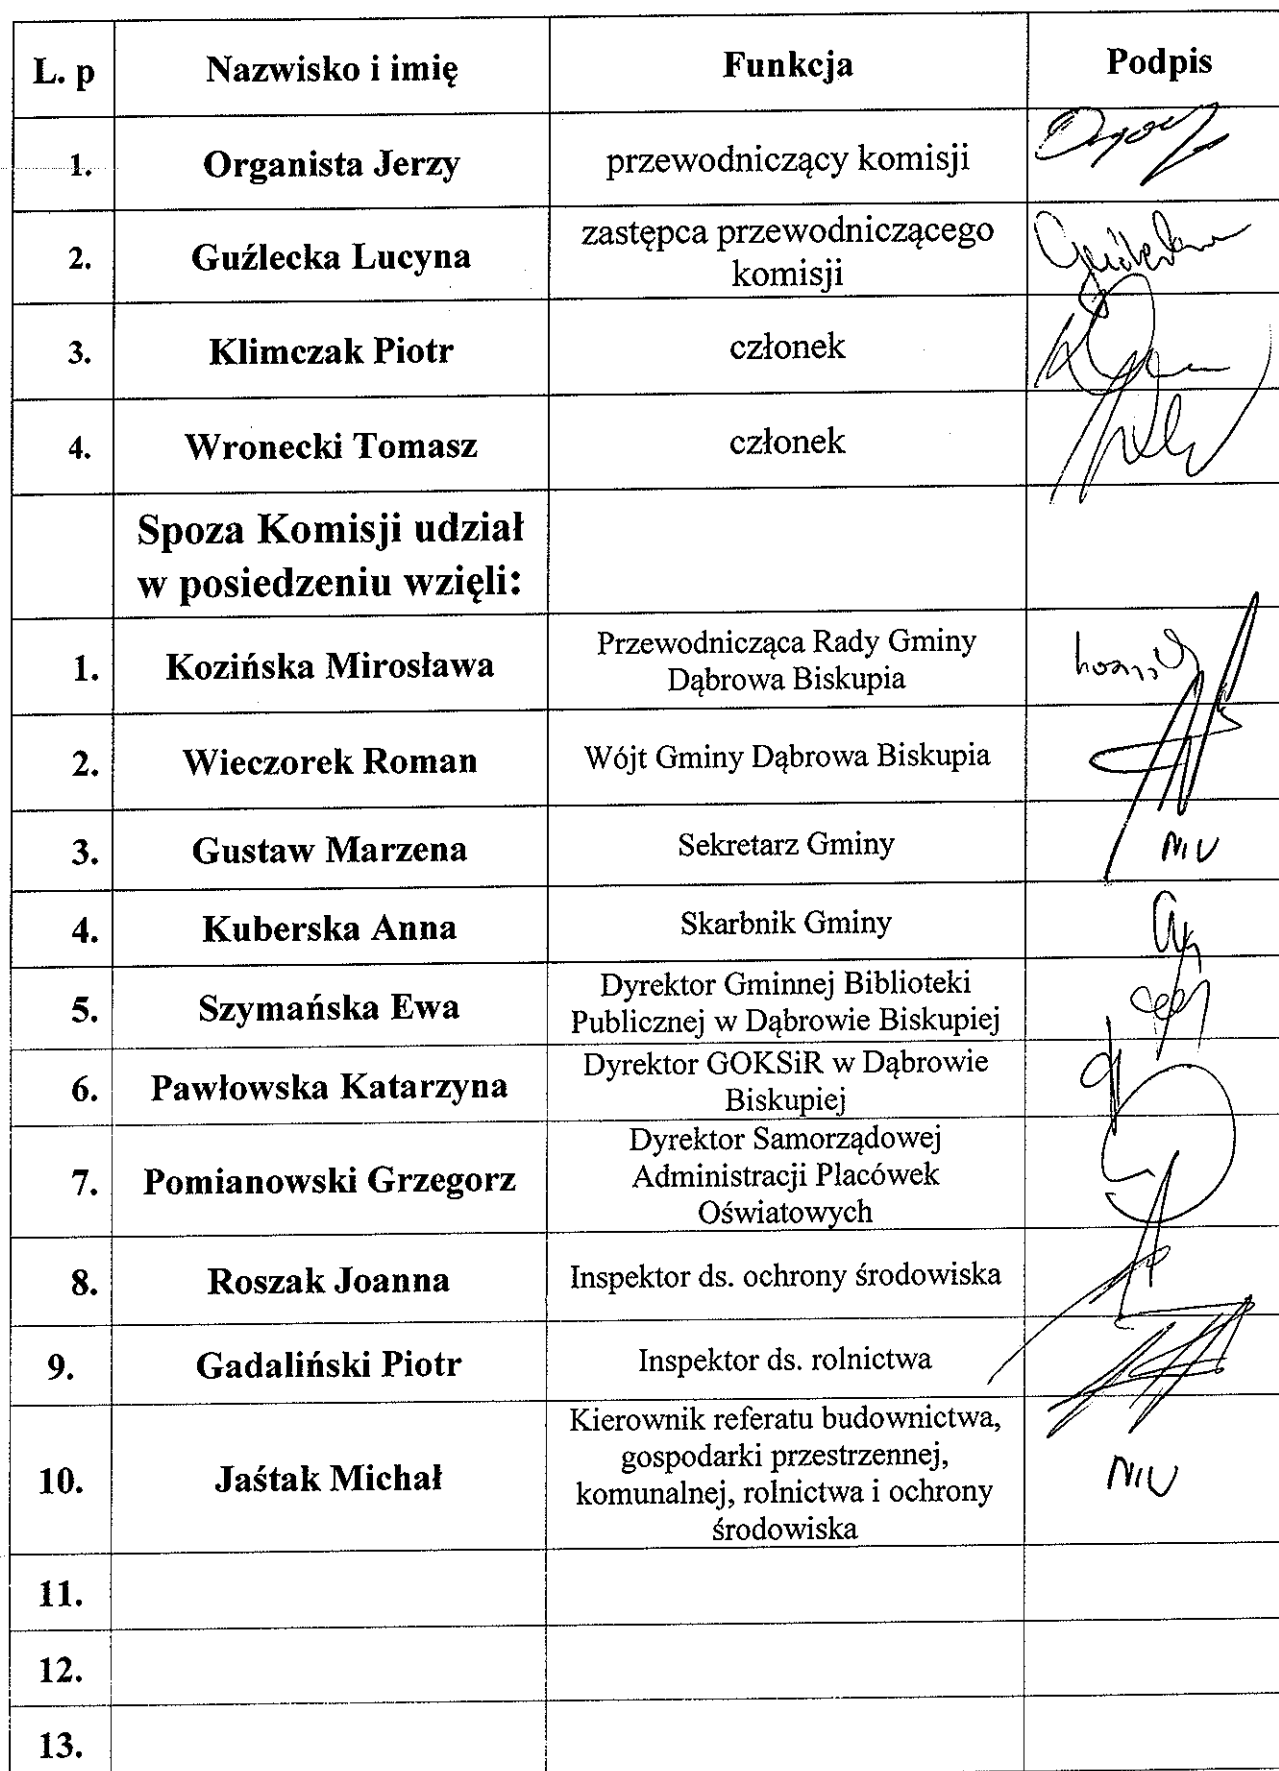 L. p Nazwisko i imię Funkcja Podpis
1. Organista Jerzy przewodniczący komisji
2. Guźlecka Lucyna zastępca przewodniczącego
komisji
3. Klimczak Piotr członek
4. Wronecki Tomasz członek
Spoza Komisji udział
w posiedzeniu wzięli:
1. Kozińska Mirosława Przewodnicząca Rady Gminy
Dąbrowa Biskupia
2. Wieczorek Roman Wójt Gminy Dąbrowa Biskupia
3. Gustaw Marzena Sekretarz Gminy
4. Kuberska Anna Skarbnik Gminy
5. Szymańska Ewa Dyrektor Gminnej Biblioteki
Publicznej w Dąbrowie Biskupiej
6. Pawłowska Katarzyna Dyrektor GOKSiR w Dąbrowie
Biskupiej
7. Pomianowski Grzegorz Dyrektor Samorządowej
Administracji Placówek
Oświatowych
8. Roszak Joanna Inspektor ds. ochrony środowiska
9. Gadaliński Piotr Inspektor ds. rolnictwa
10. Jaśtak Michał Kierownik referatu budownictwa,
gospodarki przestrzennej,
komunalnej, rolnictwa i ochrony
środowiska
11.
12.
13.